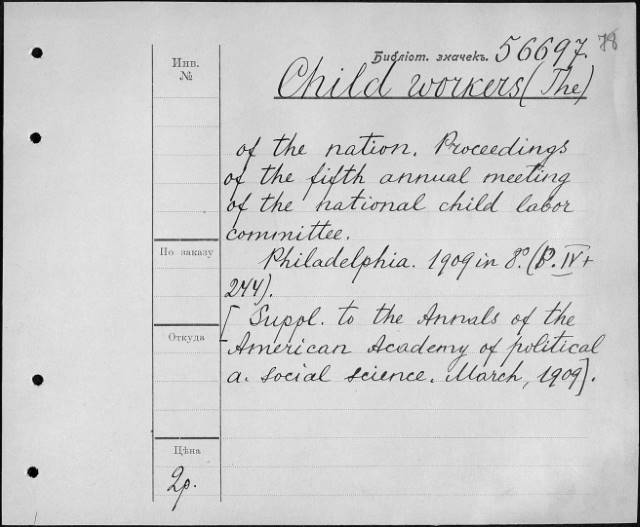 78
Библіот. значекъ. 56697.
Инв.
№
Child workers (The)
of the nation. Proceedings
of the fifth annual meeting
of the national child labor
committee.
По заказу
Philadelphia. 1909 in 8º. (P. IV +
244).
[Suppl. to the Annals of the
Откуда
American Academy of political
a. social science. March, 1909].
Цѣна
2р.